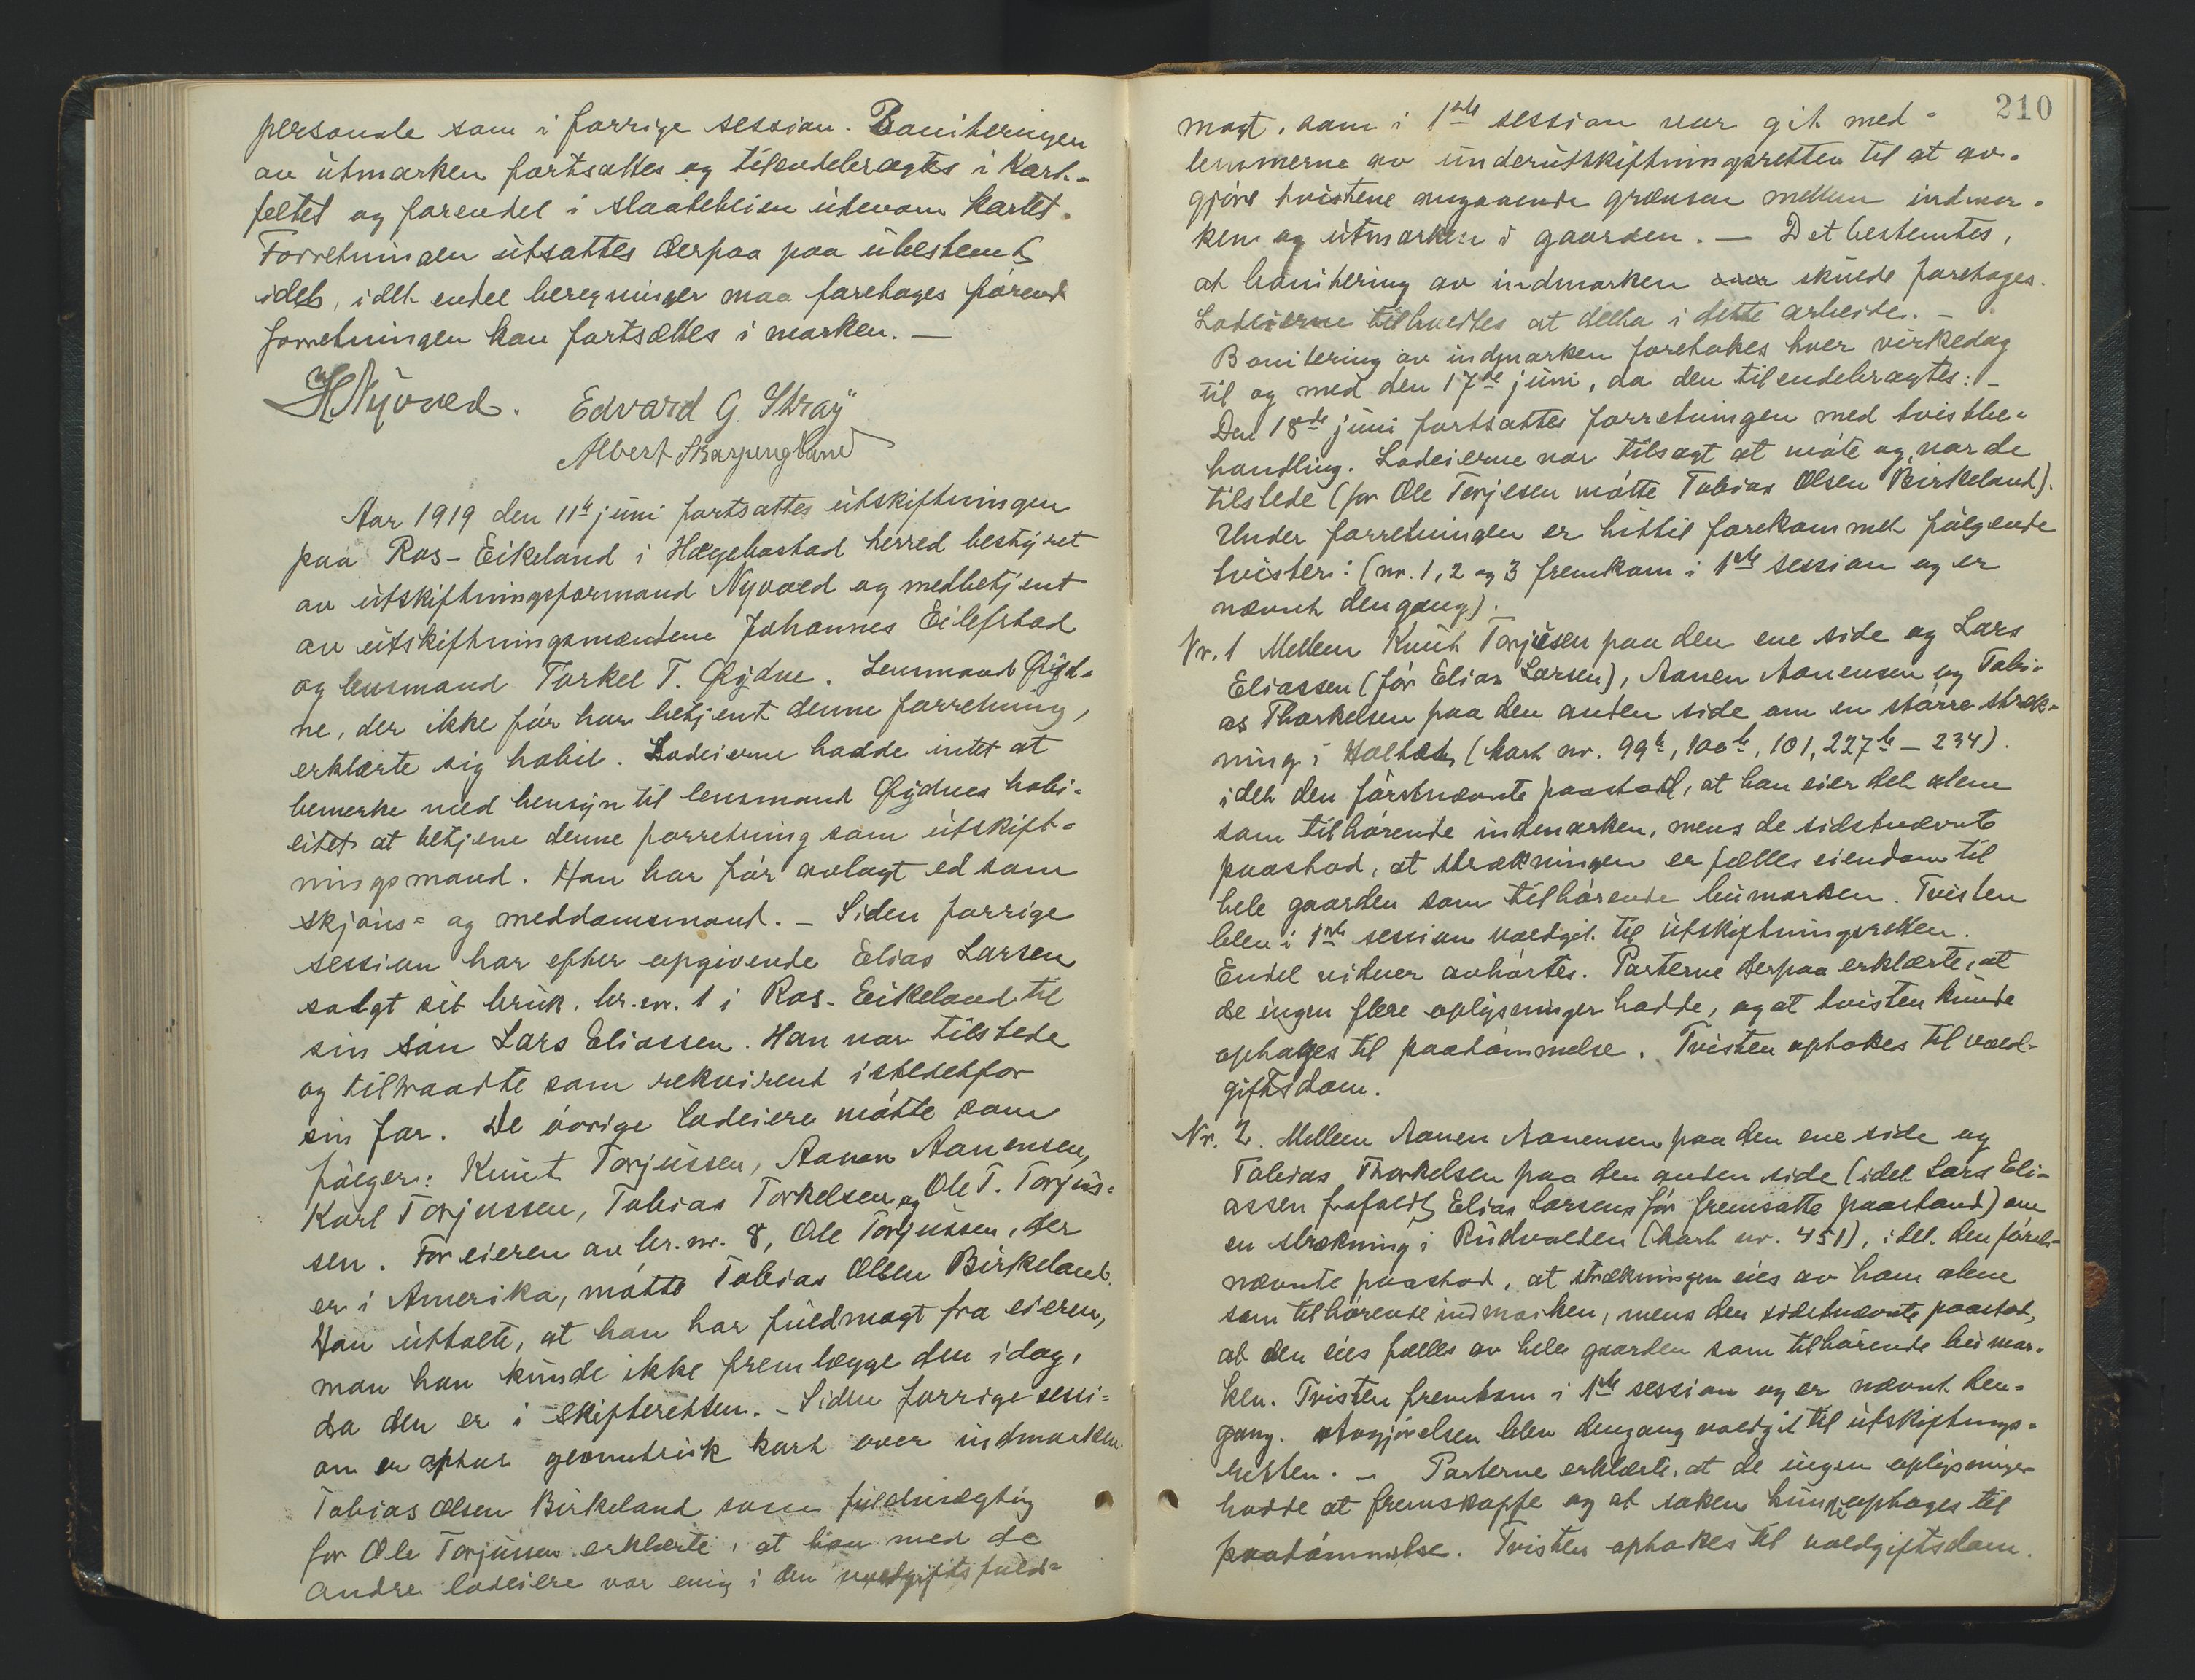 personale som i forrige session. Boniteringen
av utmarken fortsattes og tilendebragtes i Kart-
feltet og forendel i slaatteheien utenom kartet.
Forretningen utsattes derpaa paa ubestemt
idet, idet endel beregninger maa foretages førend
forretningen kan fortsættes i marken. —
H Nyvoed. Edvard G. Stray
Albert Skarpengland
Aar 1919 den 11te juni fortsattes utskiftningen
paa Ros-Eikeland i Hægebostad herred bestyret
av utskiftningsformand Nyvoed og medbetjent
av utskiftningsmændene Johannes Eilefstad
og lensmand Torkel T. Øydne. Lensmand Øyd-
ne, der ikke før har betjent denne forretning,
erklærte sig habil. Lodeierne hadde intet at
bemerke med hensyn til lensmand Øydnes habi-
litet at betjene denne forretning som utskift-
ningsmand. Han har før avlagt ed som
skjøns- og meddomsmand. - Siden forrige
session har efter opgivende Elias Larsen
solgt sit bruk, br.nr. 1 i Ros-Eikeland til
sin søn Lars Eliassen. Han var tilstede
og tiltraadte som rekvirent istedetfor
sin far. De øvrige lodeiere møtte som
følger: Knut Torjussen, Aanen Aanensen,
Karl Torjussen, Tobias Torkelsen og Ole T. Torjus-
sen. For eieren av br.nr. 8, Ole Torjussen, der
er i Amerika, møtte Tobias Olsen Birkeland.
Han uttalte, at han har fuldmagt fra eieren,
men han kunde ikke fremlægge den idag,
da den er i skifteretten. - Siden forrige sessi-
on er optat geometrisk kart over indmarken.
Tobias Olsen Birkeland som fuldmægtig
for Ole Torjussen erklærte, at han med de
andre lodeiere var enig i den voldgiftsfuld-
210
magt, som i 1ste session var git med-
lemmerne av underutskiftningsretten til at av-
gjøre tvistene angaaende grænsen mellem indmar-
ken og utmarken i gaarden. — Det bestemtes,
at bonitering av indmarken skulde foretages.
Lodeierne tilholdtes at delta i dette arbeide. -
Bonitering av indmarken foretokes hver virkedag
til og med den 17de juni, da den tilendebragtes: -
Den 18de juni fortsattes forretningen med tvistbe-
handling. Lodeierne var tilsagt at møte og var de
tilstede (for Ole Torjesen møtte Tobias Olsen Birkeland).
Under forretningen er hittil forekommet følgende
tvister: (nr. 1, 2 og 3 fremkom i 1ste session og er
nævnt dengang).
Nr. 1 Mellem Knut Torjusen paa den ene side og Lars
Eliassen (før Elias Larsen), Aanen Aanensen og Tobi-
as Thorkelsen paa den anden side om en større stræk-
ning i (kart nr. 99b, 100b, 101, 227b - 234).
idet den førstnævnte paastod, at han eier det alene
som tilhørende indmarken, mens de sidstnævnte
paastod, at strækningen er fælles eiendom til
hele gaarden som tilhørende heimarken. Tvisten
blev i 1ste session voldgit til utskiftningsretten.
Endel vidner avhørtes. Parterne derpaa erklærte, at
de ingen flere oplysninger hadde, og at tvisten kunde
optages til paadømmelse. Tvisten optokes til vold-
giftsdom.
Nr. 2. Mellem Aanen Aanensen paa den ene side og
Tobias Thorkelsen paa den anden side (idet Lars Eli-
assen frafaldt Elias Larsens før fremsatte paastand) om
en strækning i Rudvolden (kart nr. 451), idet den først-
nævnte paastod, at strækningen eies av ham alene
som tilhørende indmarken, mens den sidstnævnte paastod,
at den eies fælles av hele gaarden som tilhørende heimar-
ken. Tvisten fremkom i 1ste session og er nævnt den-
gang. Avgjørelsen blev dengang voldgit til utskiftnings-
retten. - Parterne erklærte, at de ingen oplysninger
hadde at fremskaffe og at saken kunde optages til
paadømmelse. Tvisten optokes til voldgiftsdom.